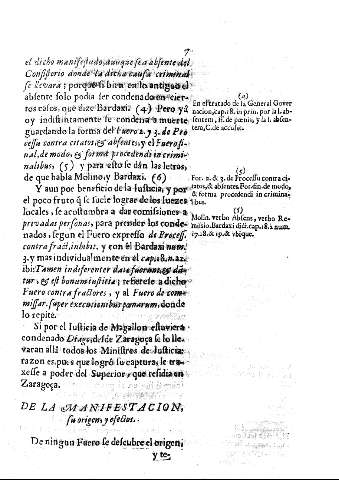 7
el dicho manifestado, aunque sea absente del
Consistorio donde la dicha causa criminal
se llevara; porque si bien en lo antiguo el
absente solo podia ser condenado en cier-
tos casos, que dize Bardaxi. (4) Pero ya
oy indistintamente se condena à muerte
guardando la forma del Fuero 2. y 3. de Pro-
cessu contra citatos, & absentes, y el Fuero si-
nal, de modo, & forma procedendi in crimi-
nalibus, (5) y para esto se dàn las letras,
de que habla Molino, y Bardaxi. (6)
Y aun por beneficio de la Justicia, y por
el poco fruto q̃ se suele lograr de los Juezes
locales, se acostumbra à dar comisiones a
privadas personas, para prender los conde-
nados, segun el Fuero expresso de Process.
contra fract. inhibit. y con el Bardaxi num.
3. y mas individualmente en el cap. 18. n. 2.
ibi: Tamen indiferenter dari
tur, & est bonum iustitia; refierese à dicho
Fuero contra fractores, y al Fuero de com-
missar. super executionibus pœnarum, donde
lo repite.
Si por el Justicia de Magallon estuviera
condenado Diago, desde Zaragoça se lo lle-
varan allà todos los Ministros de Justicia:
razon es, pues que logrò su captura, le tra-
xesse à poder del Superior, que residia en
Zaragoça.
DE LA MANIFESTACION,
su origen, y efectos.
De ningun Fuero se descubre el origen,
y te-
(4)
En el tratado de la General Gover
nacion, cap. 18. in prin. por la l. ab-
sentem, ff. de pœnis, y la l. absen-
tem, C. de accusat.
(5)
For. 2. & 3. de Processu contra ci-
tatos, & absentes. For. fin. de modo,
& forma procedendi in crimina-
libus.
(6)
Molin. verbo Absens, verbo Re-
missio. Bardaxi dict. cap. 18. à num.
17. 18. & 19. & ubique.